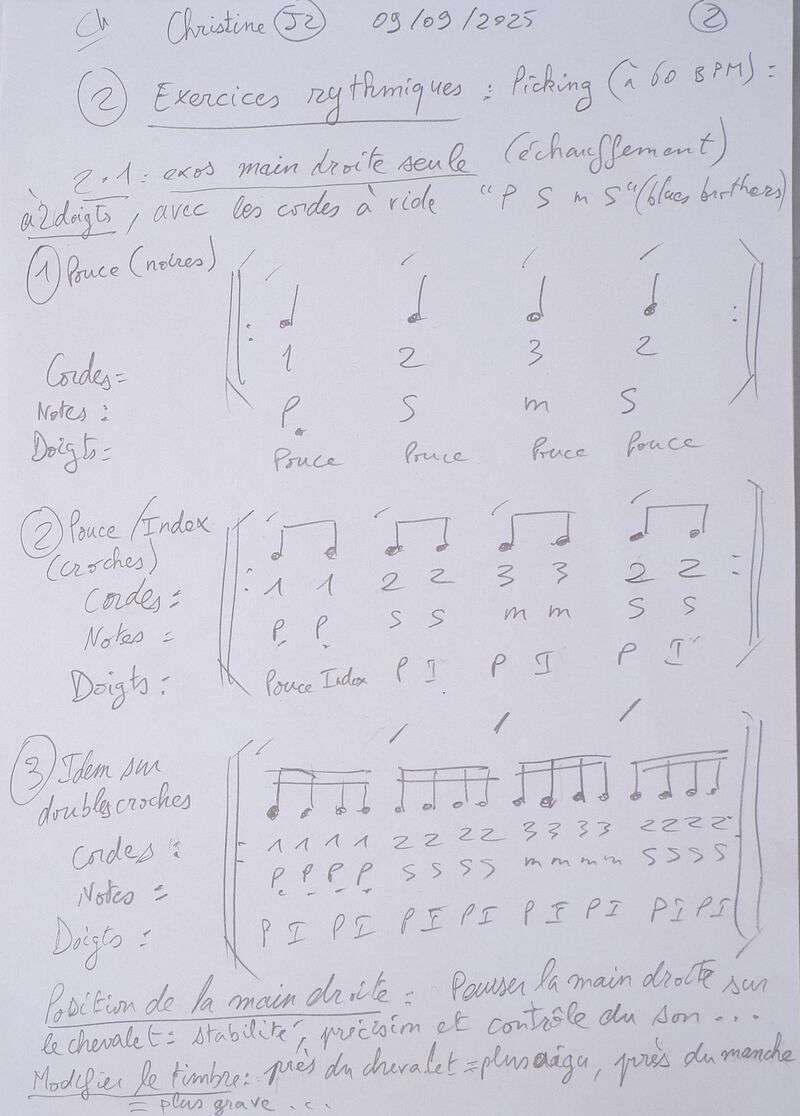 Ch Christine J2 09/09/2025 2
2 Exercices rythmiques : Picking (à 60 BPM) =
2.1 : exos main droite seule (échauffement)
à 2 doigts, avec les cordes à vide "P S m S" (blues brothers)
1 Pouce (noires)
Cordes = 1 2 3 2
Notes : P S m S
Doigts = Pouce Pouce Pouce Pouce
2 Pouce / Index
(croches)
Cordes = 1 1 2 2 3 3 2 2
Notes = P P S S m m S S
Doigts : Pouce Index P I P I P I
3 Idem sur
doubles croches
Cordes : 1 1 1 1 2 2 2 2 3 3 3 3 2 2 2 2
Notes = P P P P S S S S m m m m S S S S
Doigts : P I P I P I P I P I P I P I P I
Position de la main droite = Pauser la main droite sur
le chevalet = stabilité, précision et contrôle du son ...
Modifier le timbre : près du chevalet = plus aigu, près du manche
= plus grave ...